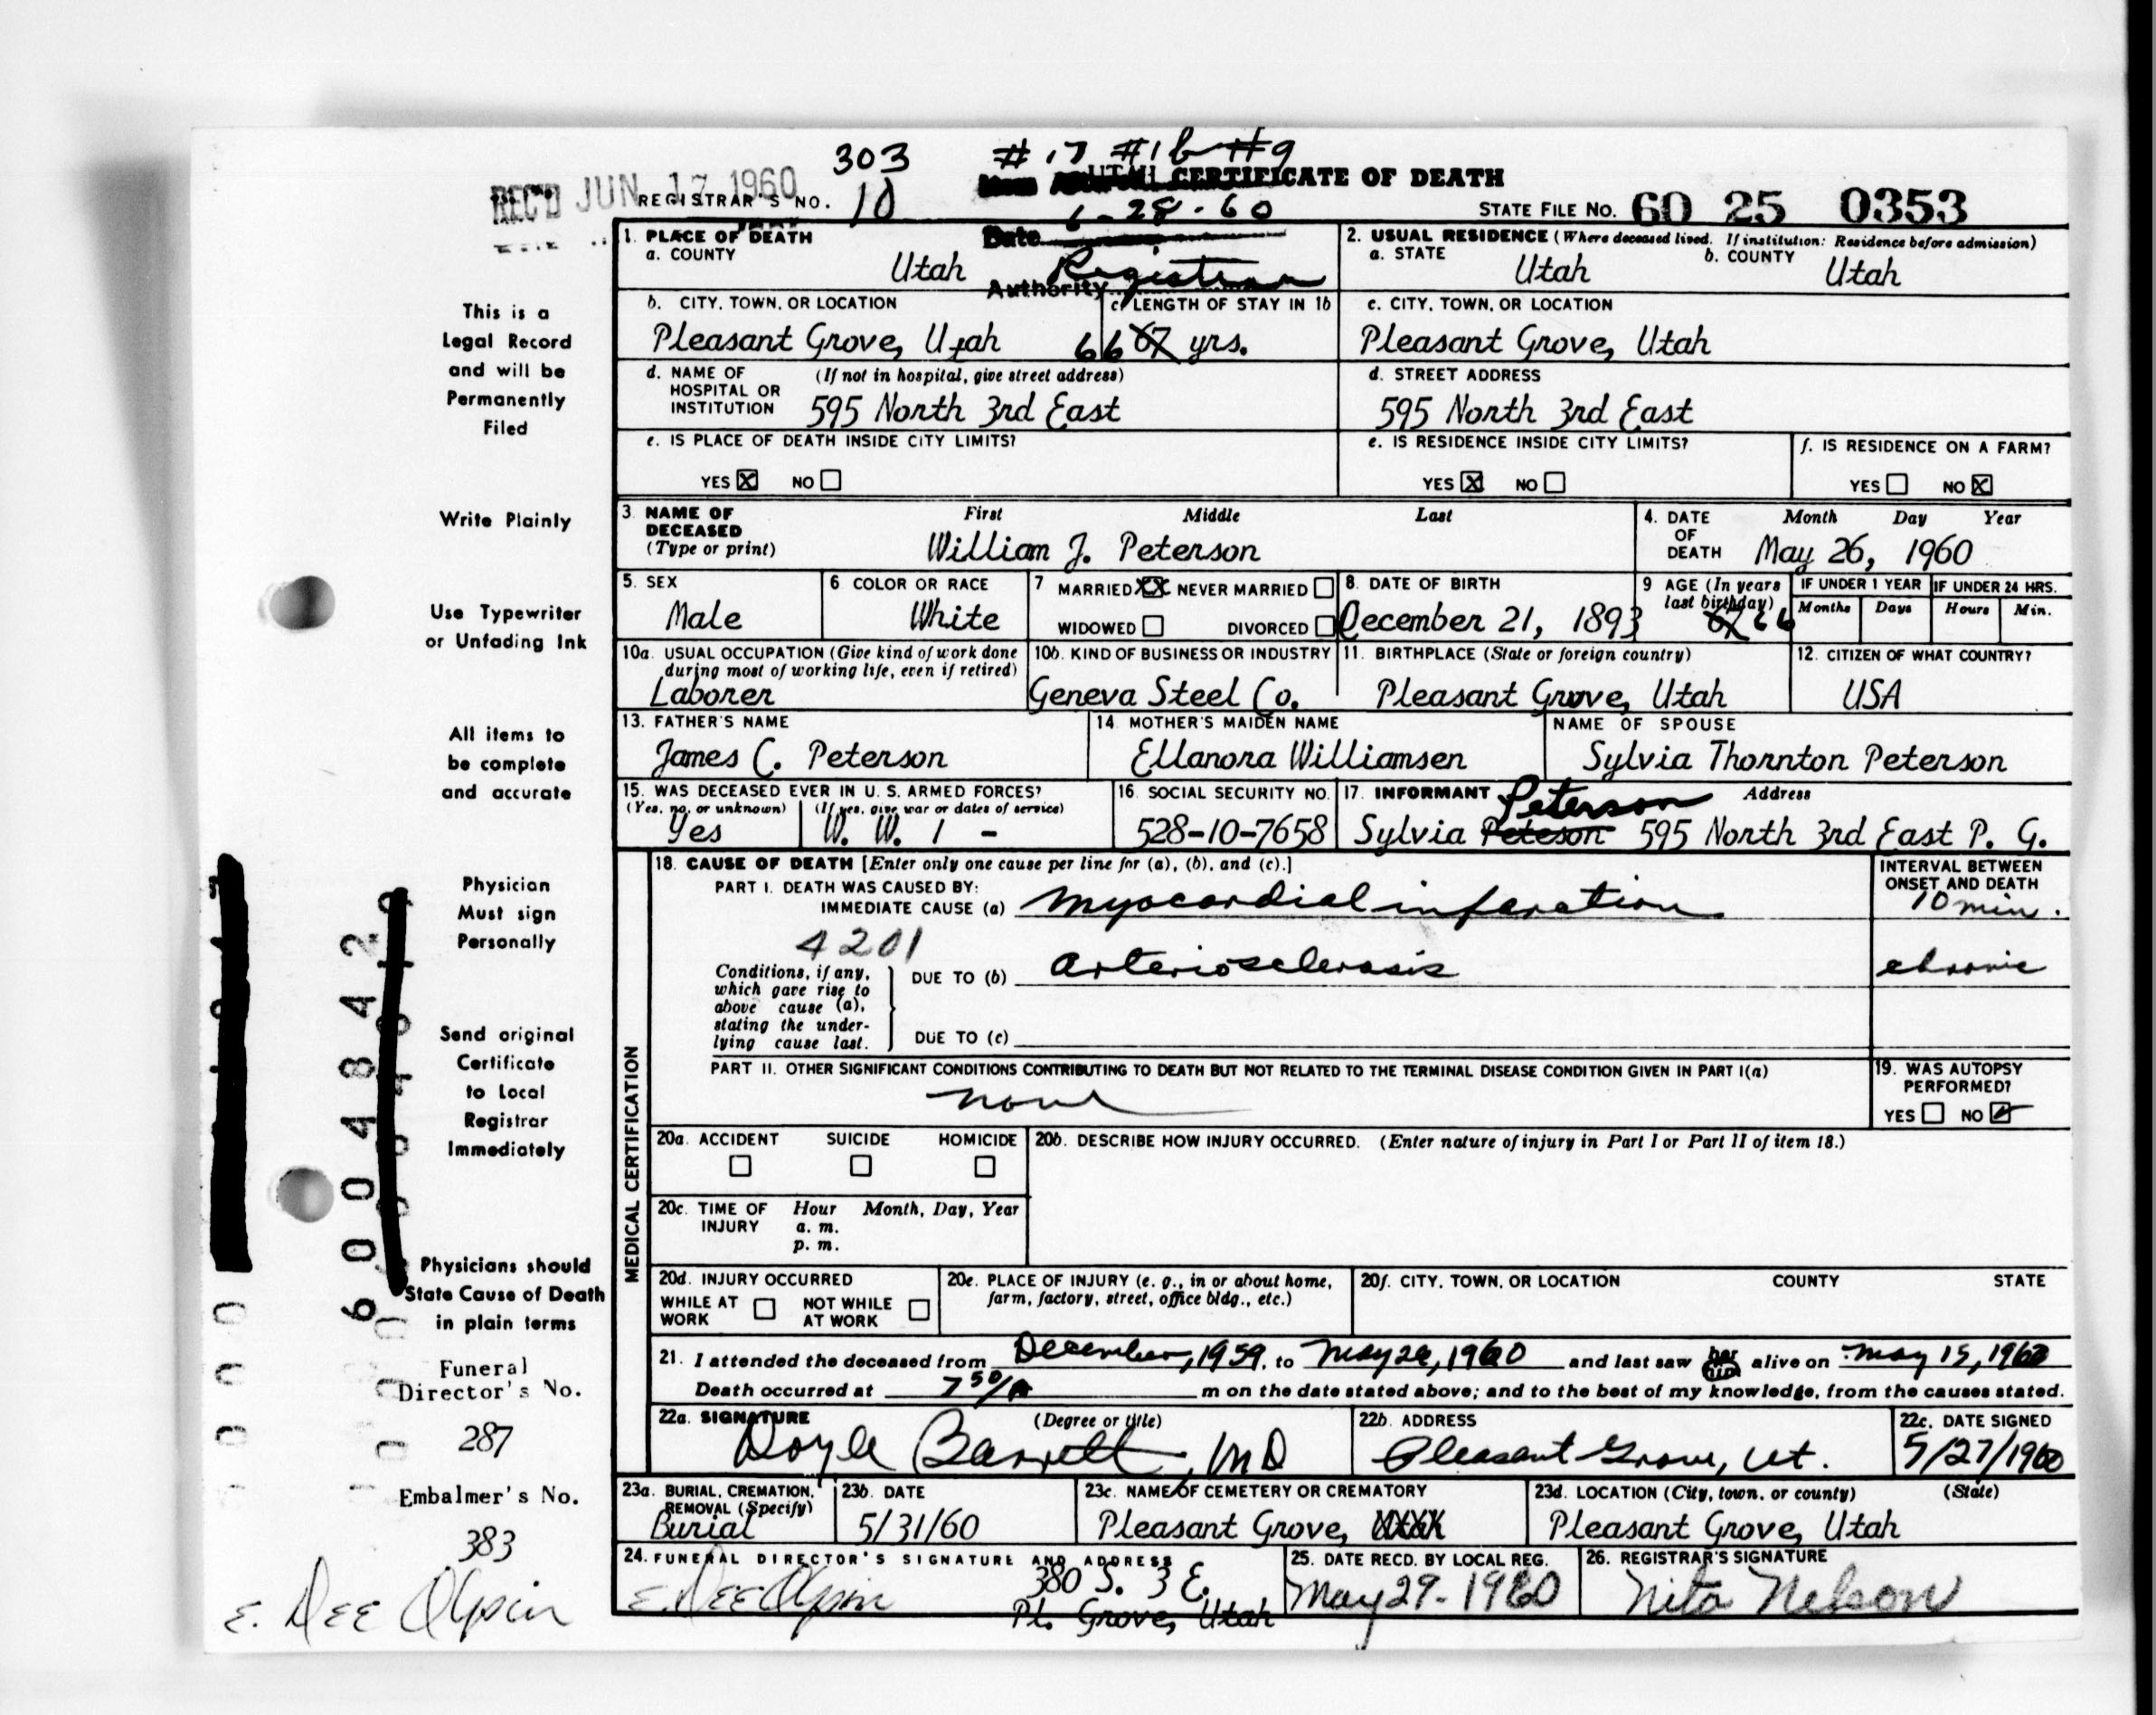 303 # 17 #1b #9
REC'D JUN 17 1960 UTAH CERTIFICATE OF DEATH
REGISTRAR'S NO. 10 6-28-60 STATE FILE NO. 60 25 0353
1. PLACE OF DEATH Date 2. USUAL RESIDENCE (Where deceased lived. If institution: Residence before admission)
a. COUNTY Utah Authority Registrar a. STATE Utah b. COUNTY Utah
b. CITY, TOWN, OR LOCATION c. LENGTH OF STAY IN 1b c. CITY, TOWN, OR LOCATION
Pleasant Grove, Utah 66 67 yrs. Pleasant Grove, Utah
d. NAME OF HOSPITAL OR INSTITUTION (If not in hospital, give street address) d. STREET ADDRESS
595 North 3rd East 595 North 3rd East
e. IS PLACE OF DEATH INSIDE CITY LIMITS? e. IS RESIDENCE INSIDE CITY LIMITS? f. IS RESIDENCE ON A FARM?
YES X NO YES X NO YES NO X
3. NAME OF DECEASED (Type or print) First Middle Last 4. DATE OF DEATH Month Day Year
William J. Peterson May 26, 1960
5. SEX 6. COLOR OR RACE 7 MARRIED XX NEVER MARRIED 8. DATE OF BIRTH 9 AGE (In years last birthday) IF UNDER 1 YEAR IF UNDER 24 HRS.
Months Days Hours Min.
Male White WIDOWED DIVORCED December 21, 1893 67 66
10a. USUAL OCCUPATION (Give kind of work done during most of working life, even if retired) 10b. KIND OF BUSINESS OR INDUSTRY 11. BIRTHPLACE (State or foreign country) 12. CITIZEN OF WHAT COUNTRY?
Laborer Geneva Steel Co. Pleasant Grove, Utah USA
13. FATHER'S NAME 14. MOTHER'S MAIDEN NAME NAME OF SPOUSE
James C. Peterson Ellanora Williamsen Sylvia Thornton Peterson
15. WAS DECEASED EVER IN U. S. ARMED FORCES? 16. SOCIAL SECURITY NO. 17. INFORMANT Peterson Address
(Yes, no, or unknown) (If yes, give war or dates of service)
Yes W. W. 1 - 528-10-7658 Sylvia Peteson 595 North 3rd East P. G.
MEDICAL CERTIFICATION
18. CAUSE OF DEATH [Enter only one cause per line for (a), (b), and (c).] INTERVAL BETWEEN ONSET AND DEATH
PART I. DEATH WAS CAUSED BY:
IMMEDIATE CAUSE (a) myocardial infaration 10 min.
4201
Conditions, if any, which gave rise to above cause (a), stating the underlying cause last.
DUE TO (b) arteriosclerosis chronic
DUE TO (c)
PART II. OTHER SIGNIFICANT CONDITIONS CONTRIBUTING TO DEATH BUT NOT RELATED TO THE TERMINAL DISEASE CONDITION GIVEN IN PART I(a) 19. WAS AUTOPSY PERFORMED?
none YES NO
20a. ACCIDENT SUICIDE HOMICIDE 20b. DESCRIBE HOW INJURY OCCURRED. (Enter nature of injury in Part I or Part II of item 18.)
20c. TIME OF INJURY Hour Month, Day, Year
a. m.
p. m.
20d. INJURY OCCURRED 20e. PLACE OF INJURY (e. g., in or about home, farm, factory, street, office bldg., etc.) 20f. CITY, TOWN, OR LOCATION COUNTY STATE
WHILE AT WORK NOT WHILE AT WORK
21. I attended the deceased from December, 1959, to May 26, 1960 and last saw her him alive on May 15, 1960
Death occurred at 7 50/A m on the date stated above; and to the best of my knowledge, from the causes stated.
22a. SIGNATURE (Degree or title) 22b. ADDRESS 22c. DATE SIGNED
Doyle Barrett, MD Pleasant Grove, Ut. 5/27/1960
23a. BURIAL, CREMATION, REMOVAL (Specify) 23b. DATE 23c. NAME OF CEMETERY OR CREMATORY 23d. LOCATION (City, town, or county) (State)
Burial 5/31/60 Pleasant Grove, Pleasant Grove, Utah
24. FUNERAL DIRECTOR'S SIGNATURE AND ADDRESS 25. DATE RECD. BY LOCAL REG. 26. REGISTRAR'S SIGNATURE
E. Dee Olpin 380 S. 3 E. May 29-1960 Nita Nelson
Pl. Grove, Utah
This is a
Legal Record
and will be
Permanently
Filed
Write Plainly
Use Typewriter
or Unfading Ink
All items to
be complete
and accurate
Physician
Must sign
Personally
Send original
Certificate
to Local
Registrar
Immediately
Physicians should
State Cause of Death
in plain terms
Funeral
Director's No.
287
Embalmer's No.
383
E. Dee Olpin